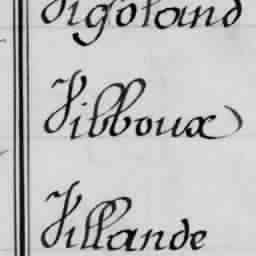 Vigoland
Vibboux
Villande